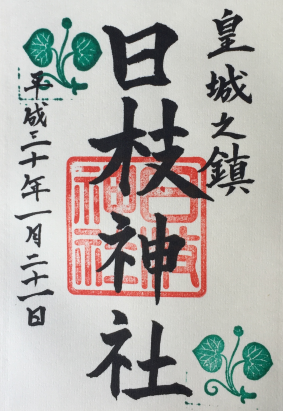 皇城之鎮
日枝神社
平成三十年一月二十一日
日枝
神社